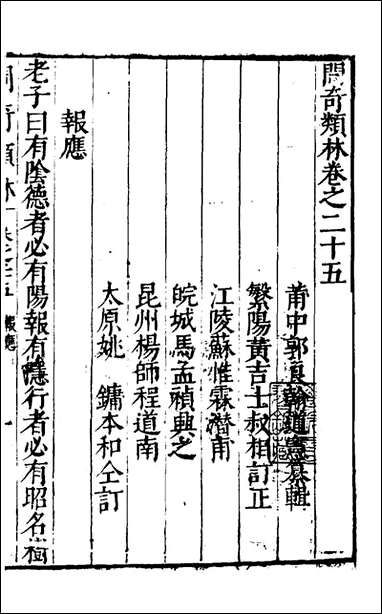 問奇類林卷之二十五
莆中郭良翰道憲纂輯
繁陽黃吉士叔相訂正
江陵蘇惟霖潛甫
皖城馬孟禎興之
昆州楊師程道南
太原姚鏞本和仝訂
報應
老子曰有陰德者必有陽報有隱行者必有昭名樹
問奇類林 卷之二十五 報應 一